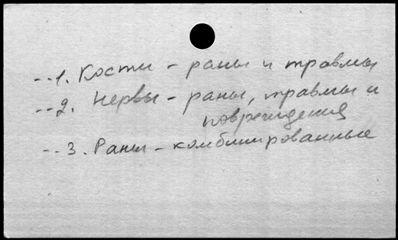 --1. Кости - раны и травмы
--2. Нервы - раны, травмы и
повреждения
--3. Раны - комбинированные